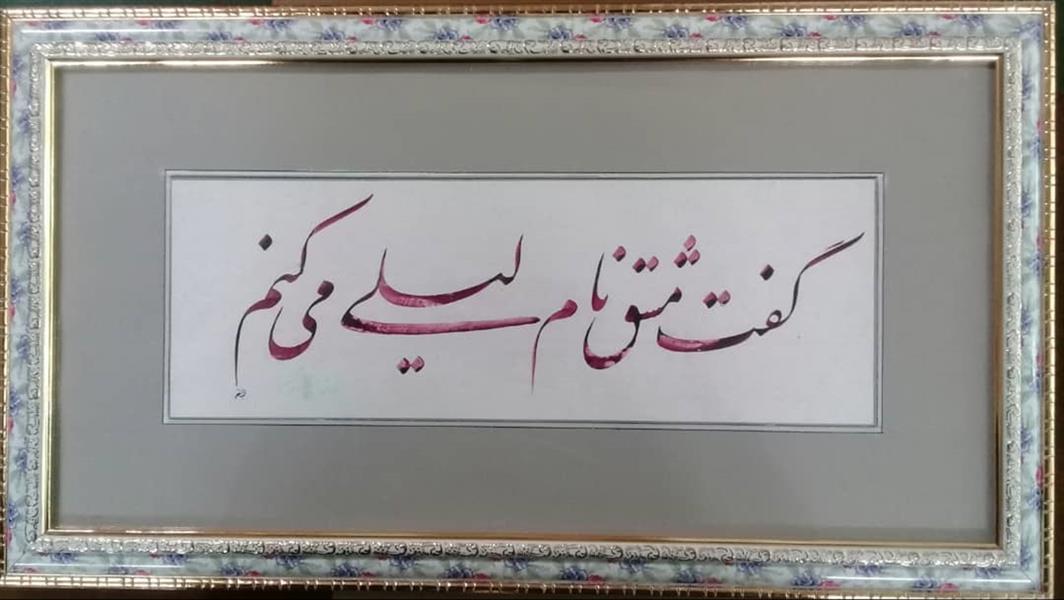 گفت مشق نام لیلی می کنم